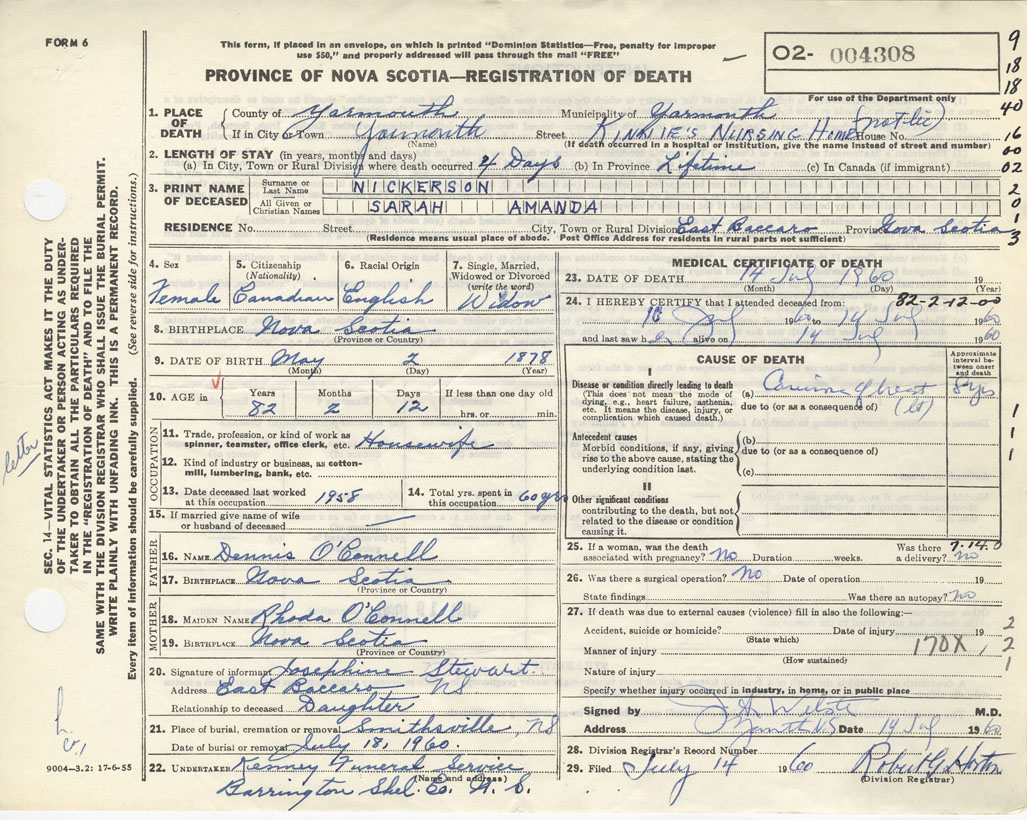 FORM 6
This form, if placed in an envelope, on which is printed "Dominion Statistics—Free, penalty for improper
use $50," and properly addressed will pass through the mail "FREE"
PROVINCE OF NOVA SCOTIA—REGISTRATION OF DEATH
02- 004308
For use of the Department only
9
18
18
40
16
00
02
2
0
1
3
1. PLACE OF DEATH
County of Yarmouth Municipality of Yarmouth
If in City or Town Yarmouth Street KINKLIE'S NURSING HOME House No. (not lic)
(Name) (If death occurred in a hospital or institution, give the name instead of street and number)
2. LENGTH OF STAY (in years, months and days)
(a) In City, Town or Rural Division where death occurred 4 Days (b) In Province Lifetime (c) In Canada (if immigrant)
3. PRINT NAME OF DECEASED
Surname or Last Name NICKERSON
All Given or Christian Names SARAH AMANDA
RESIDENCE No. Street City, Town or Rural Division East Baccaro Province Nova Scotia
(Residence means usual place of abode. Post Office Address for residents in rural parts not sufficient)
4. Sex 5. Citizenship (Nationality) 6. Racial Origin 7. Single, Married, Widowed or Divorced (write the word)
Female Canadian English Widow
8. BIRTHPLACE Nova Scotia
(Province or Country)
9. DATE OF BIRTH May 2 1878
(Month) (Day) (Year)
10. AGE in Years Months Days If less than one day old
82 2 12 hrs. or min.
OCCUPATION
11. Trade, profession, or kind of work as spinner, teamster, office clerk, etc. Housewife
12. Kind of industry or business, as cotton-mill, lumbering, bank, etc.
13. Date deceased last worked at this occupation 1958
14. Total yrs. spent in this occupation 60 yrs
15. If married give name of wife or husband of deceased —
FATHER
16. NAME Dennis O'Connell
17. BIRTHPLACE Nova Scotia
(Province or Country)
MOTHER
18. MAIDEN NAME Rhoda O'Connell
19. BIRTHPLACE Nova Scotia
(Province or Country)
20. Signature of informant Josephine Stewart
Address East Baccaro NS
Relationship to deceased Daughter
21. Place of burial, cremation or removal Smithsville, NS
Date of burial or removal July 18, 1960.
22. UNDERTAKER Kenney Funeral Service
(Name and address)
Barrington Shel. Co. N. S.
MEDICAL CERTIFICATE OF DEATH
23. DATE OF DEATH 14 July 1960 19
(Month) (Day) (Year)
24. I HEREBY CERTIFY that I attended deceased from: 82-2-12-00
10 July 1960 to 14 July 1960
and last saw h er alive on 14 July 1960
CAUSE OF DEATH
Approximate interval between onset and death
I
Disease or condition directly leading to death
(This does not mean the mode of dying, e.g., heart failure, asthenia, etc. It means the disease, injury, or complication which caused death.)
(a) Carcinoma of breast 5 yrs
due to (or as a consequence of) (lt)
Antecedent causes
Morbid conditions, if any, giving rise to the above cause, stating the underlying condition last.
(b)
due to (or as a consequence of)
(c)
II
Other significant conditions
contributing to the death, but not related to the disease or condition causing it.
1
1
1
1
25. If a woman, was the death associated with pregnancy? No Duration weeks. Was there a delivery? no
7.14.0
26. Was there a surgical operation? No Date of operation 19
State findings Was there an autopsy? no
27. If death was due to external causes (violence) fill in also the following:—
Accident, suicide or homicide? Date of injury 19
(State which)
Manner of injury 170X
(How sustained)
Nature of injury
2
2
1
Specify whether injury occurred in industry, in home, or in public place
Signed by M.D.
Address Yarmouth NS Date 14 July 1960
28. Division Registrar's Record Number
29. Filed July 14 1960 Robert G. Horton
(Division Registrar)
SEC. 14—VITAL STATISTICS ACT MAKES IT THE DUTY
OF THE UNDERTAKER OR PERSON ACTING AS UNDER-
TAKER TO OBTAIN ALL THE PARTICULARS REQUIRED
IN THE "REGISTRATION OF DEATH" AND TO FILE THE
SAME WITH THE DIVISION REGISTRAR WHO SHALL ISSUE THE BURIAL PERMIT.
WRITE PLAINLY WITH UNFADING INK. THIS IS A PERMANENT RECORD.
Every item of information should be carefully supplied. (See reverse side for instructions.)
letter
9004-3.2: 17-6-55